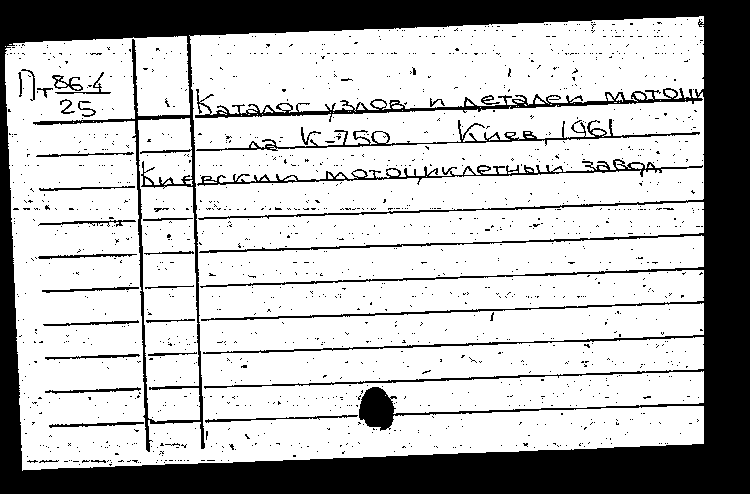 Пт 86.4
25
Каталог узлов и деталей мотоци
ла К-750. Киев, 1961
Киевский мотоциклетный завод.